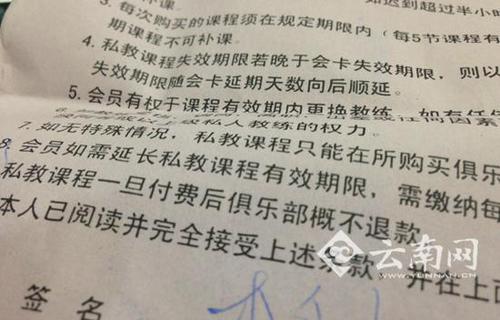 补课。
如迟到超过半小时
3. 每次购买的课程须在规定期限内（每5节课程有
期课程不可补课。
4. 私教课程失效期限若晚于会卡失效期限，则以
失效期限随会卡延期天数向后顺延。
5. 会员有权于课程有效期内更换教练，如有任
私人教练的权力。
7. 如无特殊情况，私教课程只能在所购买俱乐
8. 会员如需延长私教课程有效期限，需缴纳每
私教课程一旦付费后俱乐部概不退款
本人已阅读并完全接受上述条款，并在上
签名
云南网
WWW.YUNNAN.CN